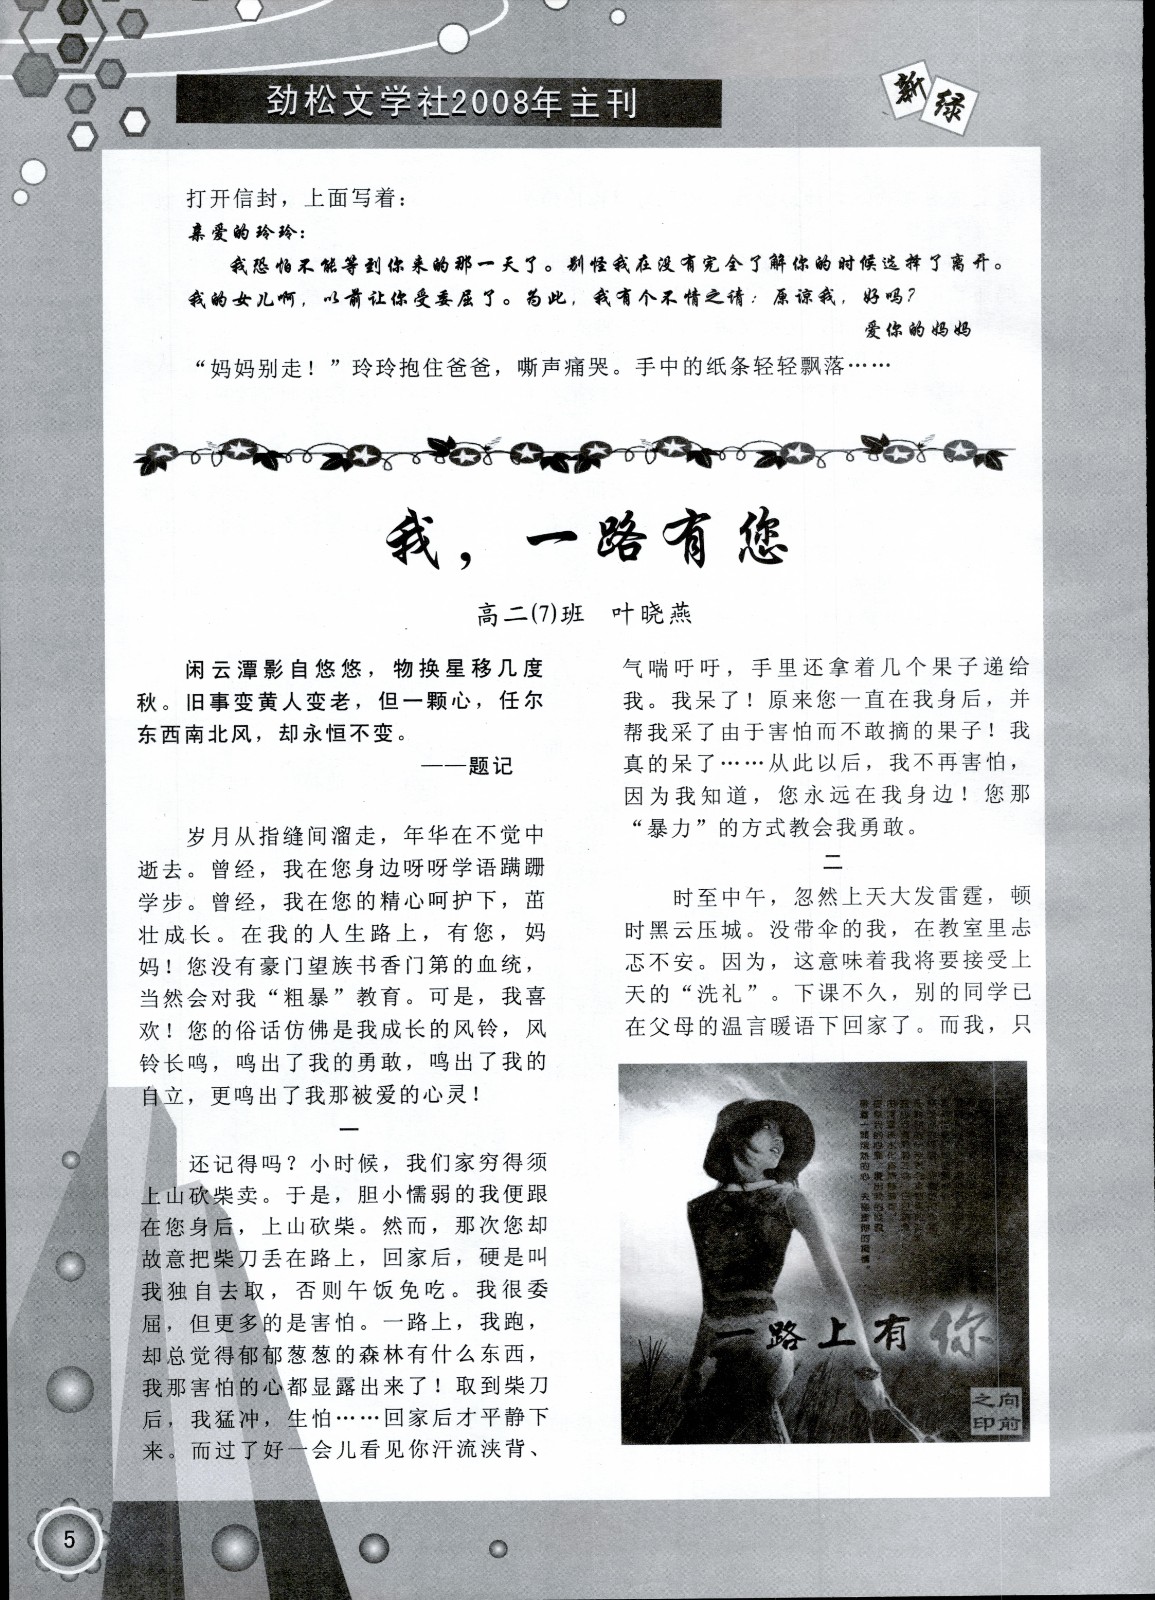 劲松文学社2008年主刊
新绿
打开信封，上面写着：
亲爱的玲玲：
我恐怕不能等到你来的那一天了。别怪我在没有完全了解你的时候选择了离开。
我的女儿啊，以前让你受委屈了。为此，我有个不情之请：原谅我，好吗？
爱你的妈妈
“妈妈别走！”玲玲抱住爸爸，嘶声痛哭。手中的纸条轻轻飘落……
我，一路有您
高二(7)班　叶晓燕
闲云潭影自悠悠，物换星移几度
秋。旧事变黄人变老，但一颗心，任尔
东西南北风，却永恒不变。
——题记
岁月从指缝间溜走，年华在不觉中
逝去。曾经，我在您身边呀呀学语蹒跚
学步。曾经，我在您的精心呵护下，茁
壮成长。在我的人生路上，有您，妈
妈！您没有豪门望族书香门第的血统，
当然会对我“粗暴”教育。可是，我喜
欢！您的俗话仿佛是我成长的风铃，风
铃长鸣，鸣出了我的勇敢，鸣出了我的
自立，更鸣出了我那被爱的心灵！
一
还记得吗？小时候，我们家穷得须
上山砍柴卖。于是，胆小懦弱的我便跟
在您身后，上山砍柴。然而，那次您却
故意把柴刀丢在路上，回家后，硬是叫
我独自去取，否则午饭免吃。我很委
屈，但更多的是害怕。一路上，我跑，
却总觉得郁郁葱葱的森林有什么东西，
我那害怕的心都显露出来了！取到柴刀
后，我猛冲，生怕……回家后才平静下
来。而过了好一会儿看见你汗流浃背、
气喘吁吁，手里还拿着几个果子递给
我。我呆了！原来您一直在我身后，并
帮我采了由于害怕而不敢摘的果子！我
真的呆了……从此以后，我不再害怕，
因为我知道，您永远在我身边！您那
“暴力”的方式教会我勇敢。
二
时至中午，忽然上天大发雷霆，顿
时黑云压城。没带伞的我，在教室里忐
忑不安。因为，这意味着我将要接受上
天的“洗礼”。下课不久，别的同学已
在父母的温言暖语下回家了。而我，只
一路上有你
向前
之印
5